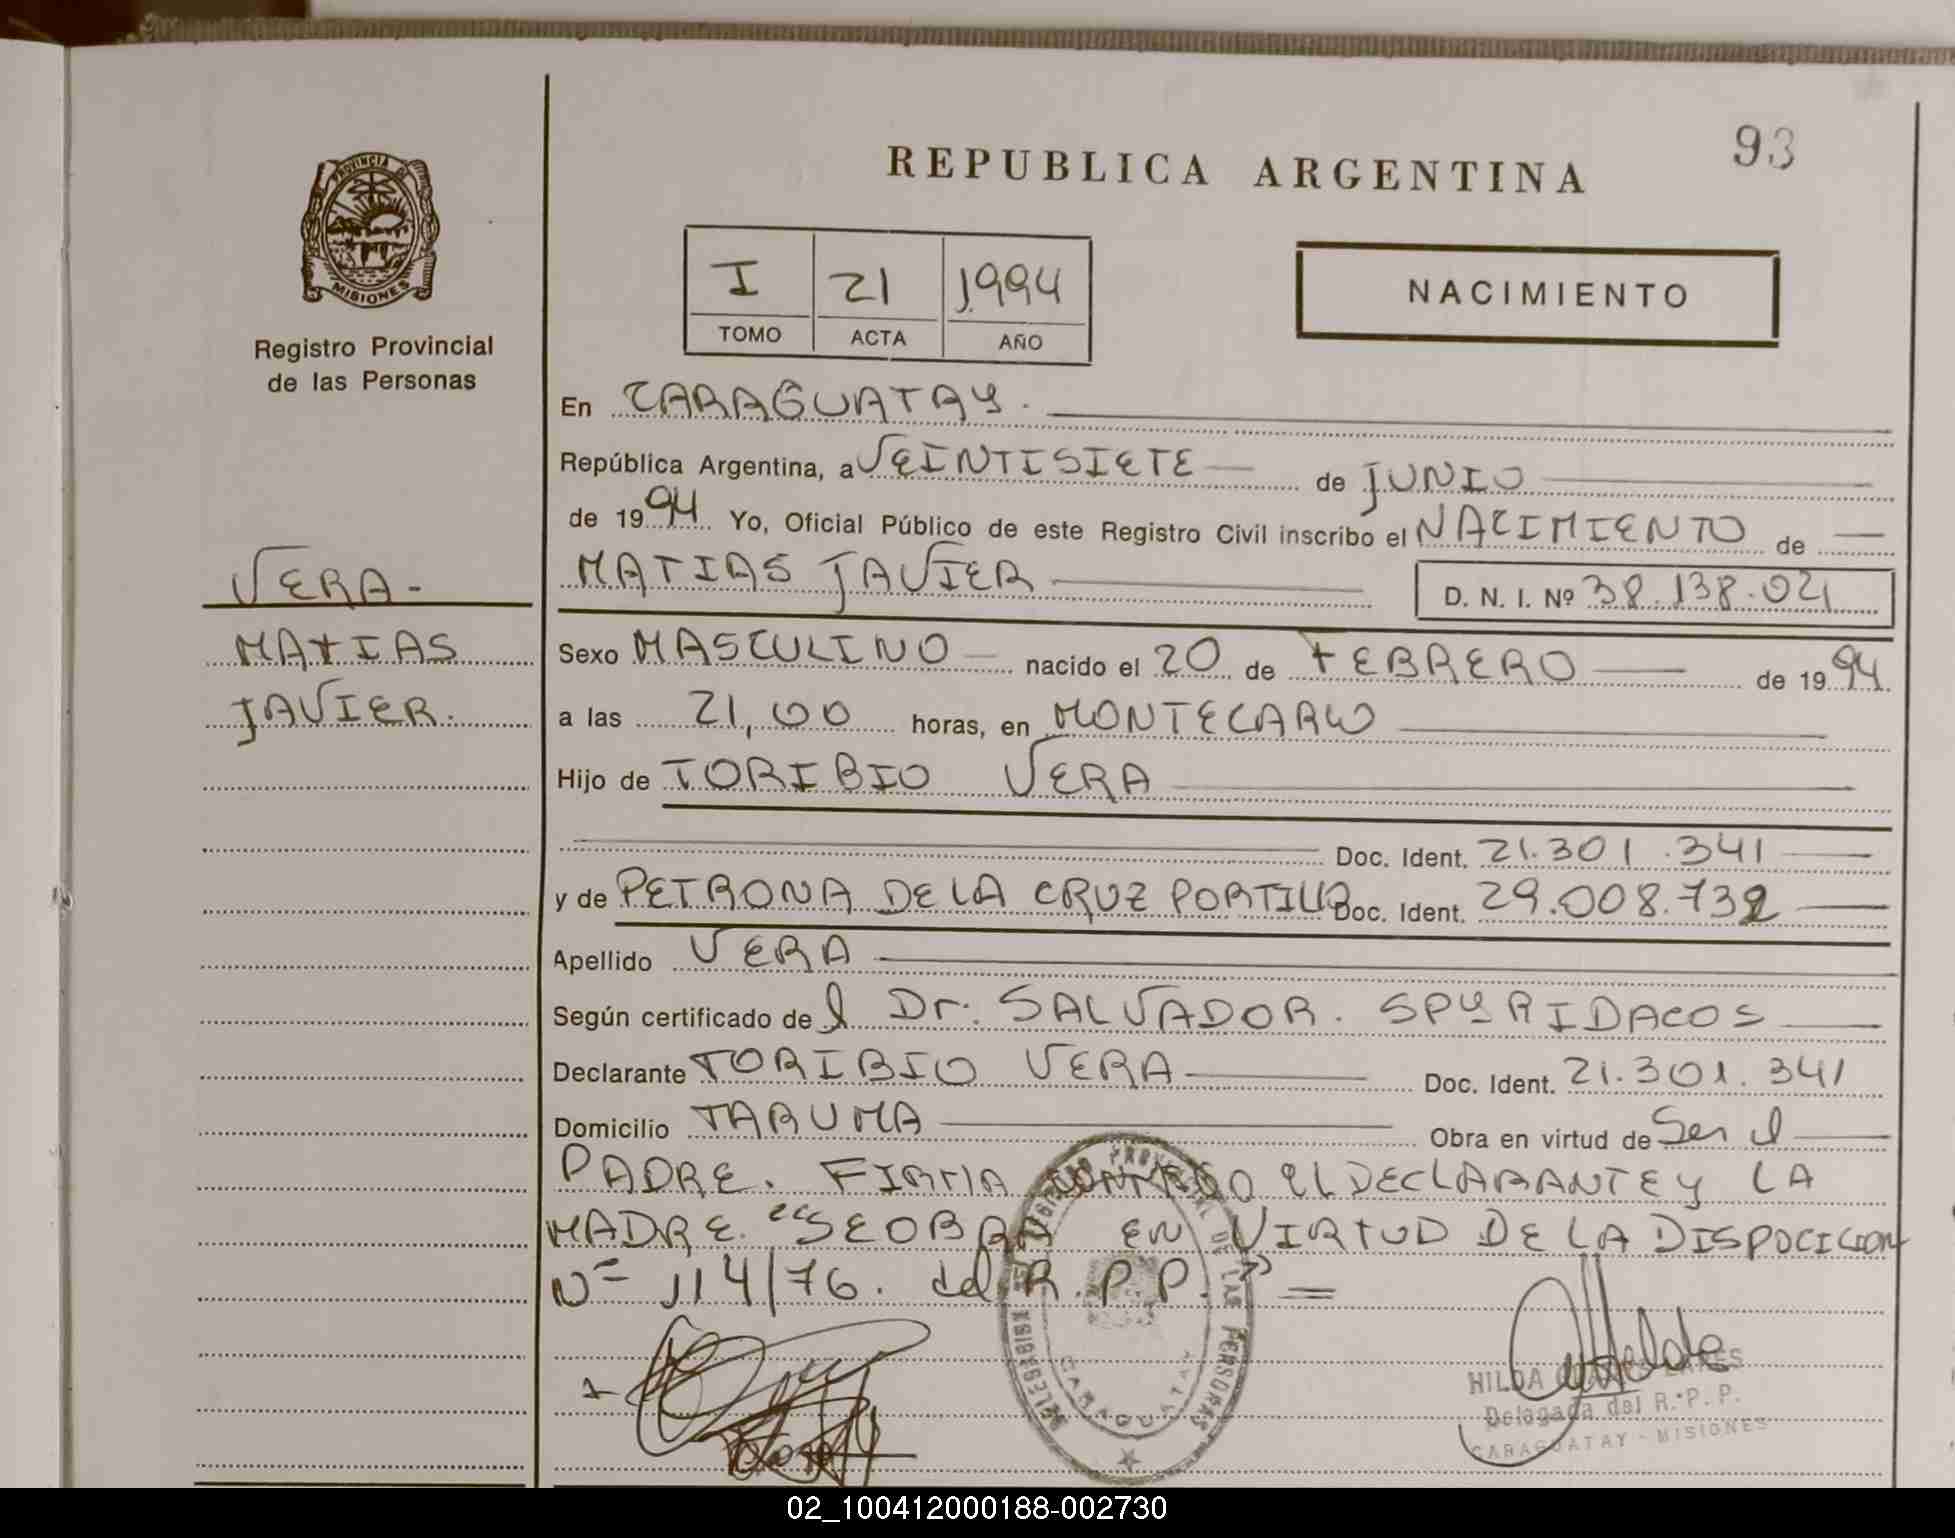 93
REPUBLICA ARGENTINA
PROVINCIA DE
MISIONES
Registro Provincial
de las Personas
I 21 1.994
TOMO ACTA AÑO
NACIMIENTO
En CARAGUATAY.
República Argentina, a VEINTISIETE de JUNIO
de 1994 Yo, Oficial Público de este Registro Civil inscribo el NACIMIENTO de
MATIAS JAVIER D. N. I. Nº 38.138.021
VERA-
MATIAS
JAVIER.
Sexo MASCULINO nacido el 20 de FEBRERO de 1994.
a las 21,00 horas, en MONTECARLO
Hijo de TORIBIO VERA
Doc. Ident. 21.301.341
y de PETRONA DE LA CRUZ PORTILLO Doc. Ident. 29.008.732
Apellido VERA
Según certificado del Dr: SALVADOR. SPYRIDACOS
Declarante TORIBIO VERA Doc. Ident. 21.301.341
Domicilio TARUMA Obra en virtud de Ser el
PADRE. FIRMA CONMIGO El DECLARANTE y LA
MADRE. "SE OBRA EN VIRTUD DE LA DISPOCICION
Nº 114/76. del R.P.P." =
REGISTRO PROVINCIAL DE LAS PERSONAS
CARAGUATAY
HILDA
Delegada del R.P.P.
CARAGUATAY - MISIONES
02_100412000188-002730